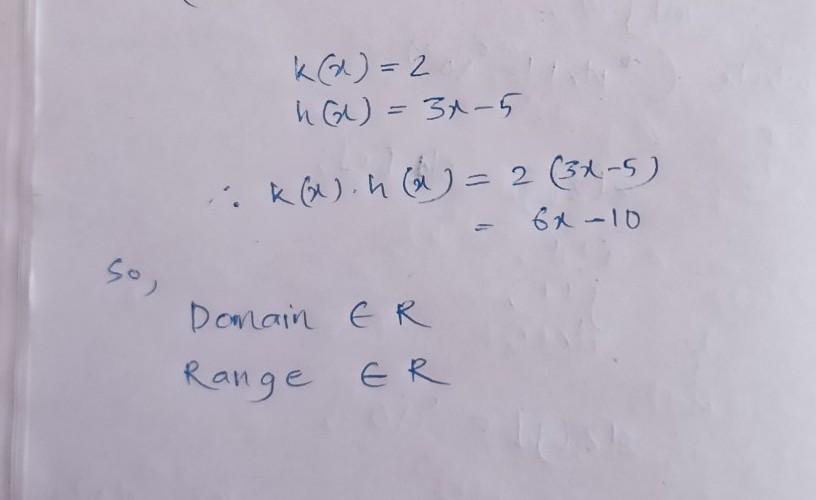 k(x) = 2
h(x) = 3x - 5
∴ k(x) . h(x) = 2 (3x - 5)
= 6x - 10
So,
Domain ∈ R
Range ∈ R